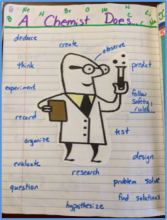 A Chemist Does...
deduce
create
observe
think
predict
experiment
follow
safety
rules
record
test
organize
evaluate
design
research
question
problem solve
find solutions
hypothesize